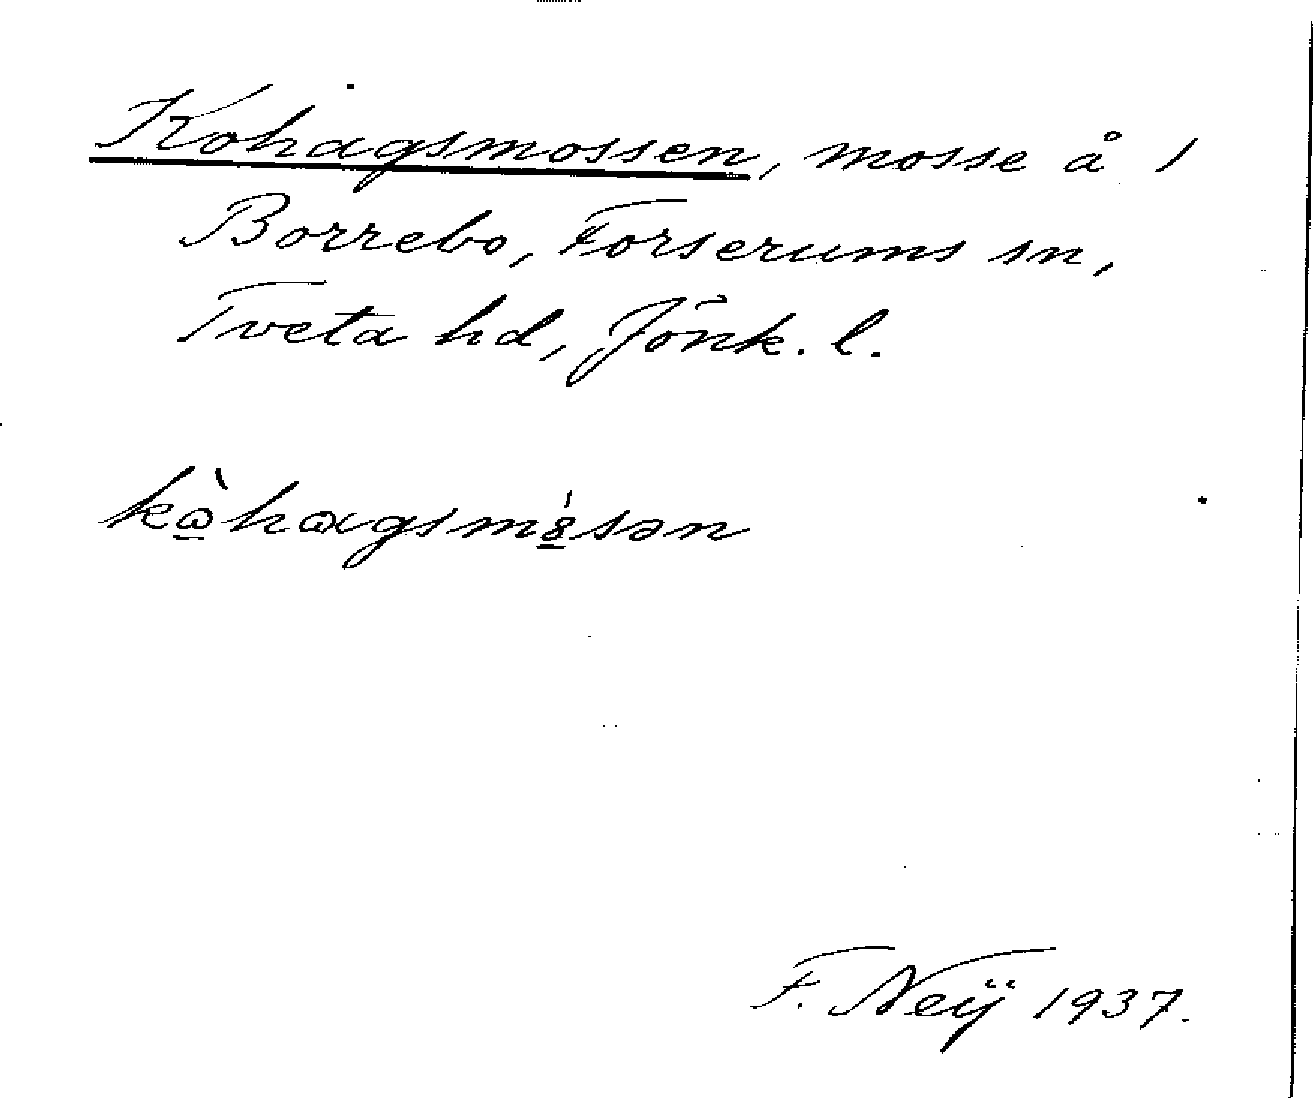 Kohagsmossen, mosse å 1
Borrebo, Forserums sn,
Tveta hd, Jönk. l.
F. Neÿ 1937.